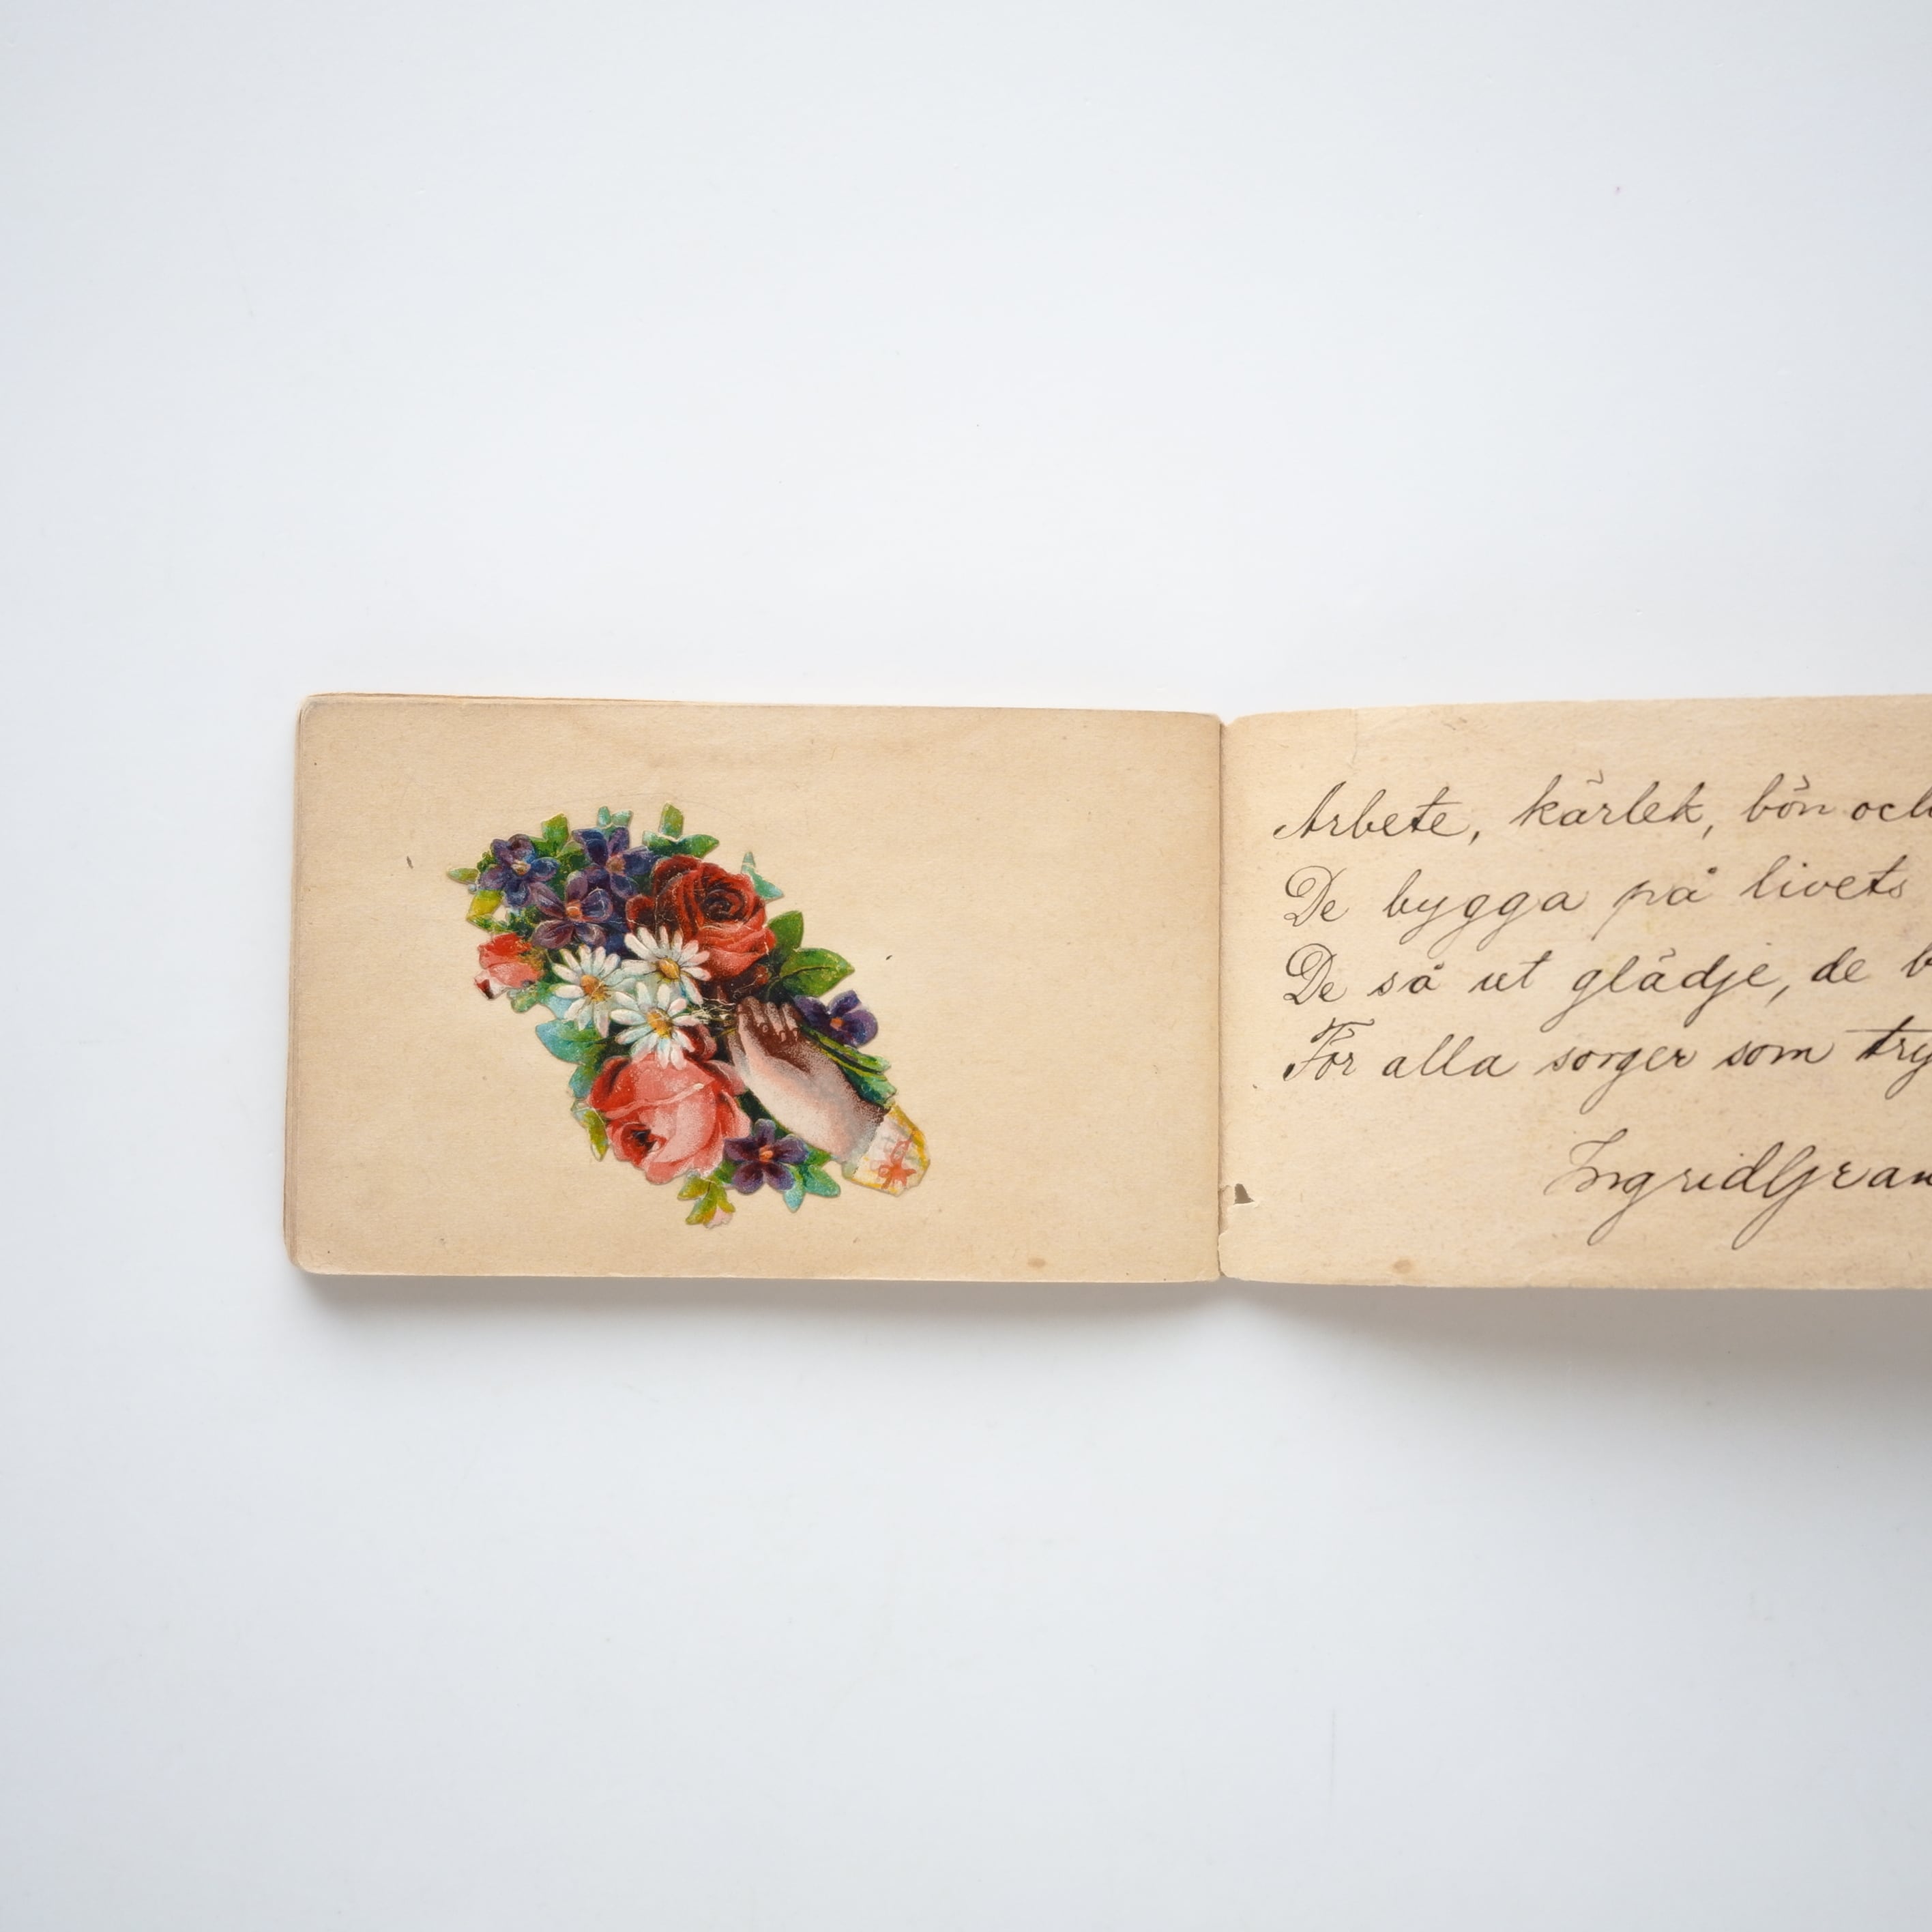 Arbete, kärlek, bön och
De bygga på livets
De så ut glädje, de
För alla sorger som
Ingrid